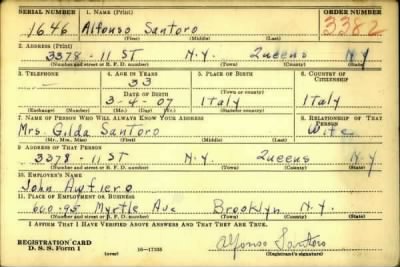 SERIAL NUMBER 1. NAME (Print) ORDER NUMBER
1646 Alfonso Santoro 3382
(First) (Middle) (Last)
2. ADDRESS (Print)
3378-11 ST N.Y. Queens N Y
(Number and street or R. F. D. number) (Town) (County) (State)
3. TELEPHONE 4. AGE IN YEARS 5. PLACE OF BIRTH 6. COUNTRY OF CITIZENSHIP
— 33
DATE OF BIRTH (Town or county)
3-4-07 Italy Italy
(Exchange) (Number) (Mo.) (Day) (Yr.) (State or country)
7. NAME OF PERSON WHO WILL ALWAYS KNOW YOUR ADDRESS 8. RELATIONSHIP OF THAT PERSON
Mrs. Gilda Santoro Wife
(Mr., Mrs., Miss) (First) (Middle) (Last)
9. ADDRESS OF THAT PERSON
3378-11 ST N.Y. Queens N Y
(Number and street or R. F. D. number) (Town) (County) (State)
10. EMPLOYER'S NAME
John
11. PLACE OF EMPLOYMENT OR BUSINESS
Myrtle Ave Brooklyn N.Y.
(Number and street or R. F. D. number) (Town) (County) (State)
I AFFIRM THAT I HAVE VERIFIED ABOVE ANSWERS AND THAT THEY ARE TRUE.
REGISTRATION CARD
D. S. S. Form 1 (over) 16—17105 Alfonso Santoro
(Registrant's signature)